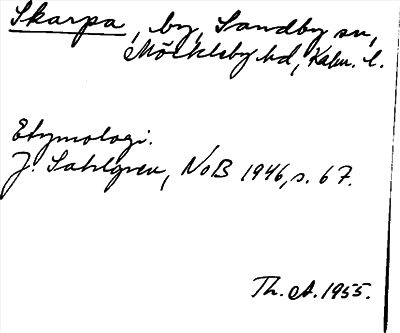 Skarpa, by, Sandby sn,
Möckleby hd, Kalm. l.
Etymologi.
J. Sahlgren, NoB 1946, s. 67.
Th. A. 1955.